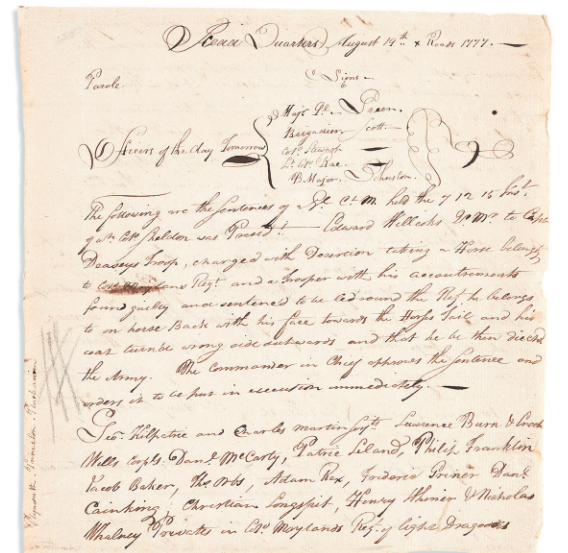 Head Quarters August 19th + Roads 1777.
Signs
Parole
Majr Gl. Green.
Brigadier Scott.
Officers of the day Tomorrow
Colo. Stewart
Lt. Colo. Rae.
B Major. Johnston.
The following are the sentences of a Gl. Ct. M. held the 7 12 15 Inst.
of wh. Colo. Sheldon was Presedt. Edward Hillecks Qr. Mr. to Capt.
troop, charged with Desertion taking a Horse belongg.
to Regt and a Trooper with his accoutrements
found guilty and sentenced to be led round the Regt. he belongs
to on horse Back with his face towards the Horses Tail and his
coat turnd wrong side outwards and that he be then
the Army. The Commander in Chief approves the sentence and
orders it to be put in execution immediately.
Geo. Kilpatric and Charles martin Sergts Lawrence Burn &
Wells Corpls. Danl. McCarty, Patric Leland, Philip Franklin
Jacob Baker, Thos Orbs, Adam Rex, Frederic Griner Danl.
Christian Longspit, Henry & Nicholas
Whalney Privates in Colo. Moylands Regt. of light Dragoons